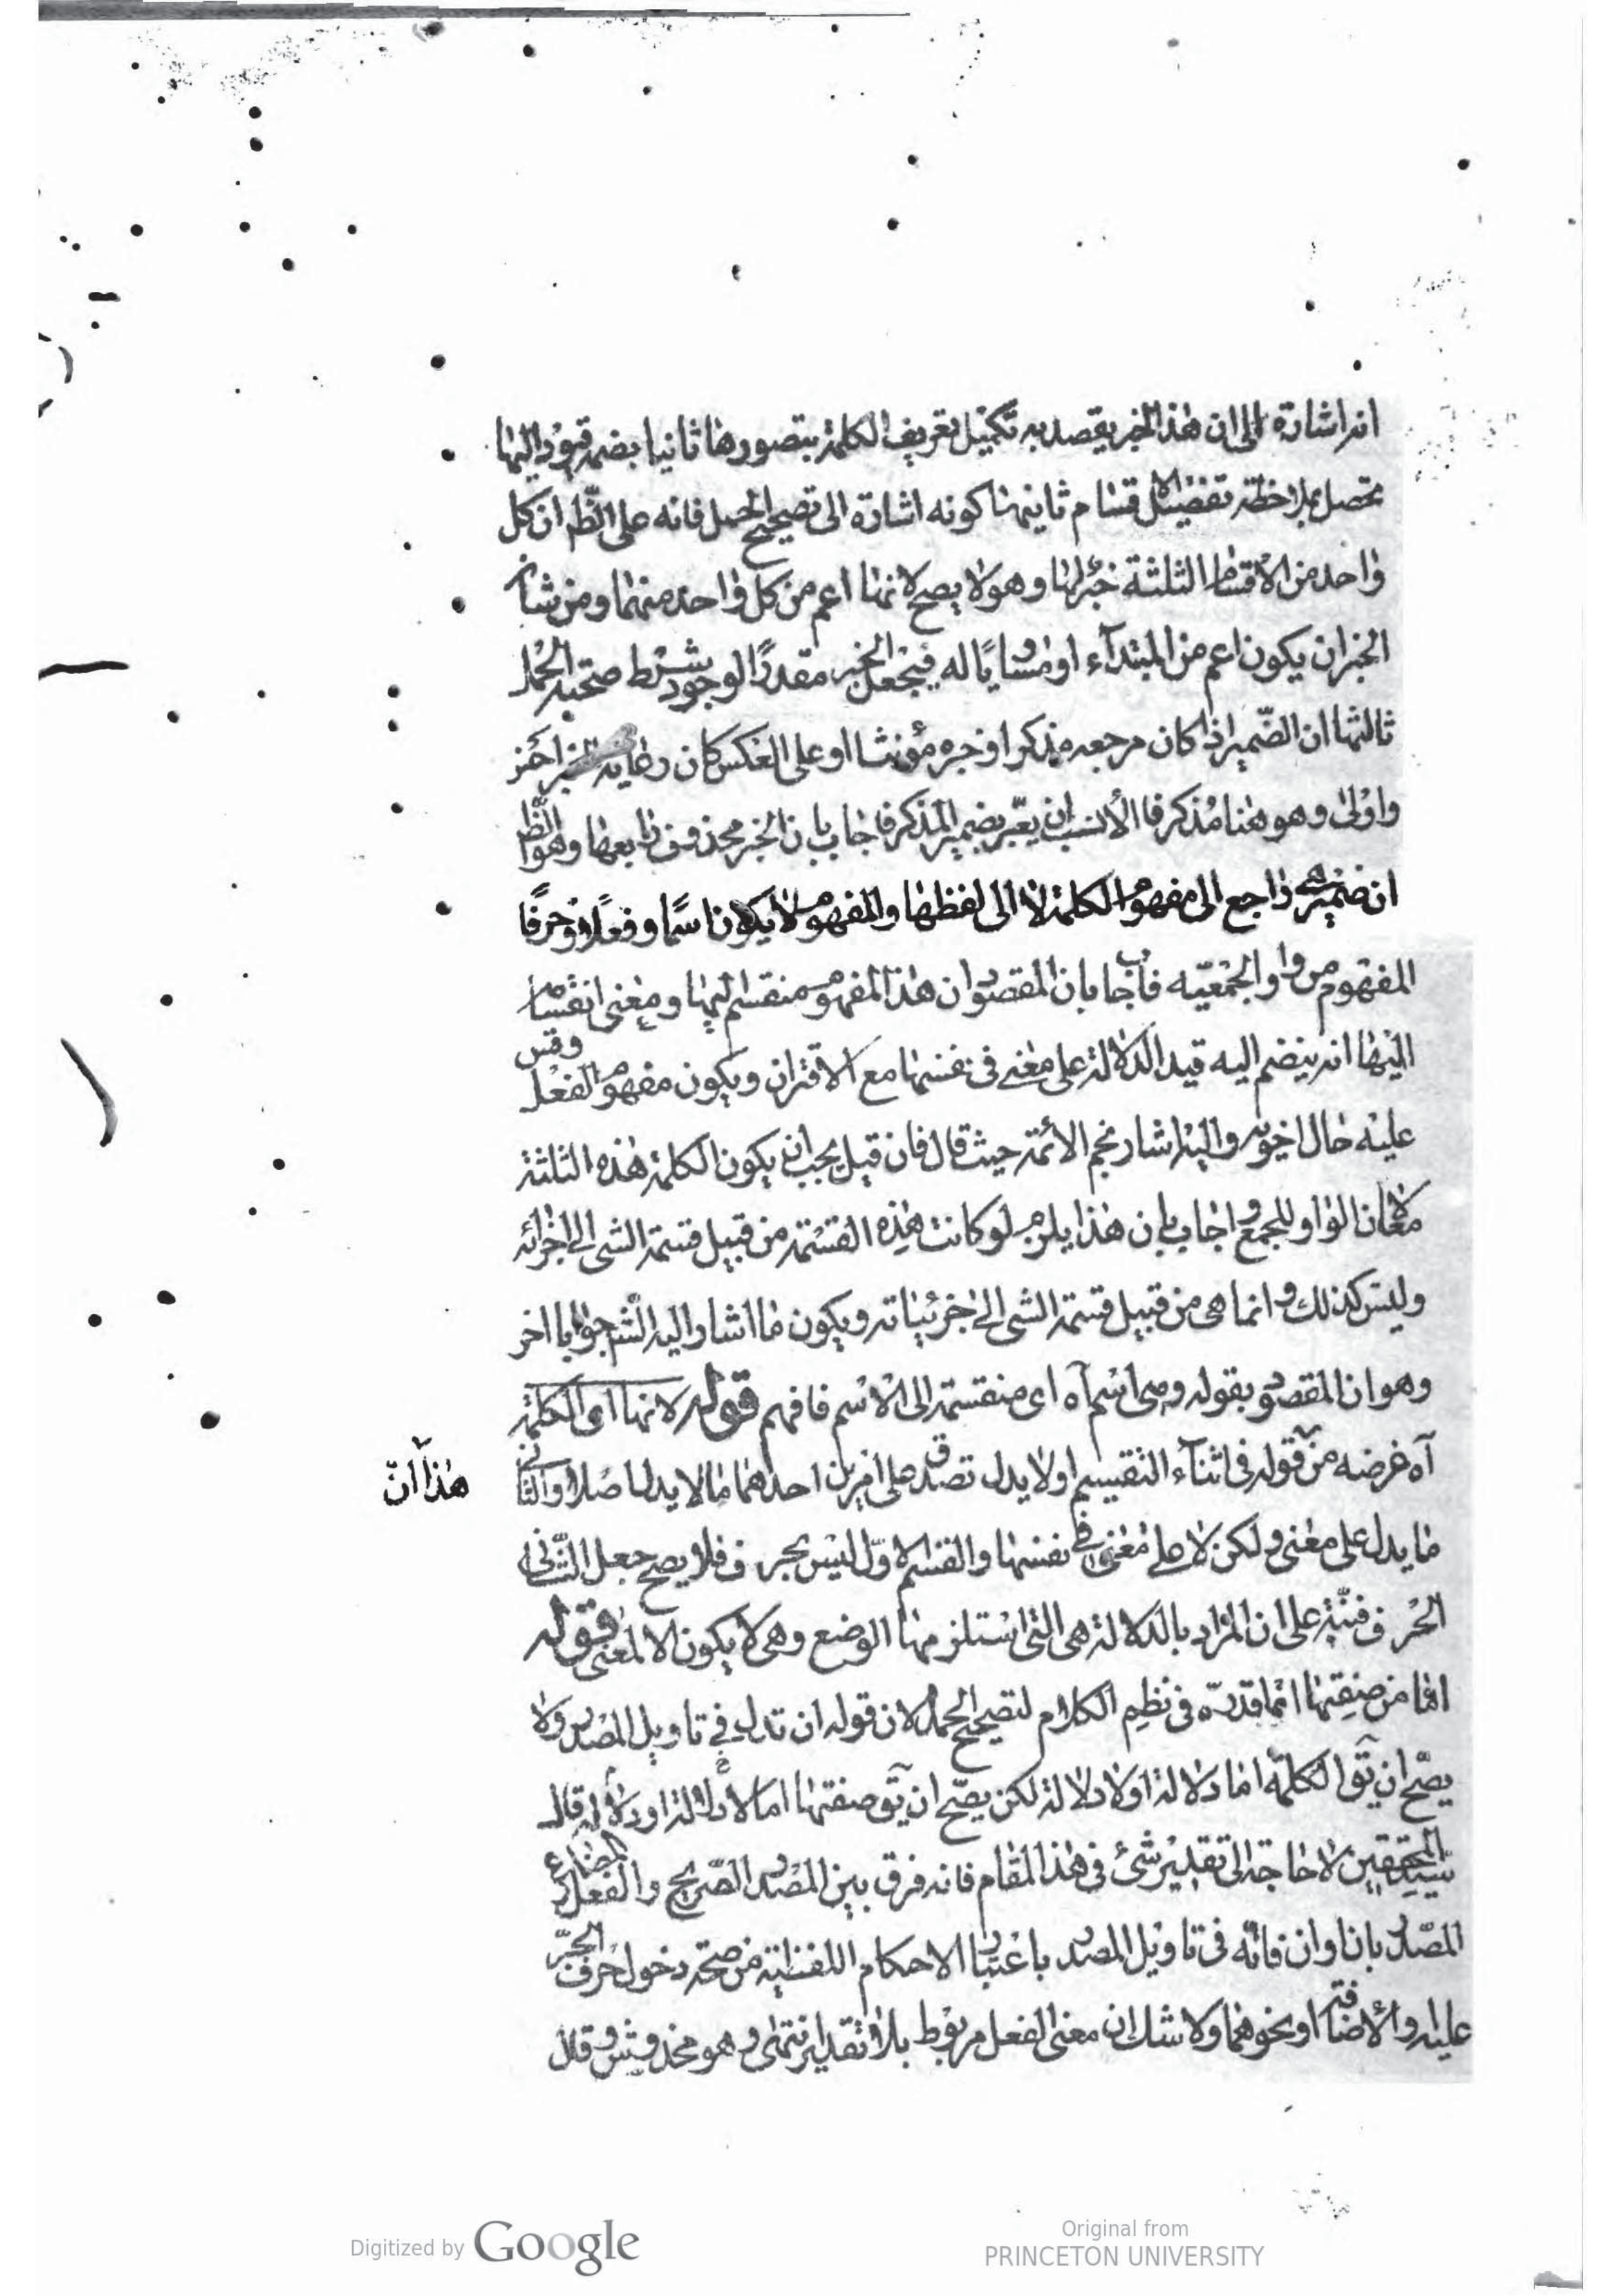 انه اشارة الى ان هذا الخبر يقصد به تكميل تعريف الكلمة بتصورها ثانيا بضم قيود اليها
تحصل بملاحظة تفصيل الاقسام ثانيتها كونه اشارة الى تصحيح الحمل فانه على الظ ان كل
واحد من الاقسام الثلثة خبر لها وهو لا يصح لانها اعم من كل واحد منهما ومن شان
الخبر ان يكون اعم من المبتدآء او مساويًا له فيجعل الخبر مقدرًا لوجود شرط صحة الحمل
ثالثها ان الضمير اذا كان مرجعه مذكرا وخبره مؤنثا او على العكس كان رعاية الخبر احز
واولى وهو هنا مذكر فالأنسب ان يعبّر بضمير المذكر فاجاب بان الخبر محذوف رابعها وهو الظ
ان ضمير هى راجع الى مفهوم الكلمة لا الى لفظها والمفهوم لا يكون اسمًا وفعلًا وحرفًا
المفهوم من واو الجمعيّه فاجاب بان المقصود ان هذا المفهوم منقسم اليها ومعنى انقسام
اليها انه ينضم اليه قيد الدلالة على معنى فى نفسها مع الاقتران ويكون مفهوم الفعل وقس
عليه حال اخويه واليه اشار نجم الأئمة حيث قال فان قيل يجب ان يكون الكلمة هذه الثلثة
معًا لان الواو للجمع واجاب بان هذا يلزم لو كانت هذه القسمة من قبيل قسمة الشى الى اجزائه
وليس كذلك وانما هى من قبيل قسمة الشى الى جزئياته ويكون ما اشار اليه الش جوابا اخر
وهو ان المقصود بقوله وهى اسم آه اى منقسمة الى الاسم فافهم قوله لانها اى الكلمة
آه غرضه من قوله فى اثنآء التقسيم او لا يدل تصدق على امرين احدهما ما لا يدل اصلا والثانى
هذا آن
ما يدل على معنى ولكن لا على معنى فى نفسها والقسم الاوّل ليس بحرف فلا يصح جعل الثانى
الحرف فنبّه على ان المراد بالدلالة هى التى استلزمها الوضع وهى لا يكون الا لمعنى قوله
اما من صفتها انما قدره فى نظم الكلام لتصحيح الحمل لان قوله ان تدل فى تاويل المصدر ولا
يصحّ ان يق الكلمة اما دلالة او لا دلالة لكن يصحّ ان يق صفتها اما لا دلالة او دلالة قال
سيد المحققين لا حاجة الى تقدير شئ فى هذا المقام فانه فرق بين المصدر الصريح والفعل المضارع
المصدّر بان وان فانّه فى تاويل المصدر باعتبار الاحكام اللفظية من صحة دخول حرف الجرّ
عليه والأضافة او نحوهما ولا شك ان معنى الفعل مربوط بلا تقدير انتهى وهو مخدوش وقال